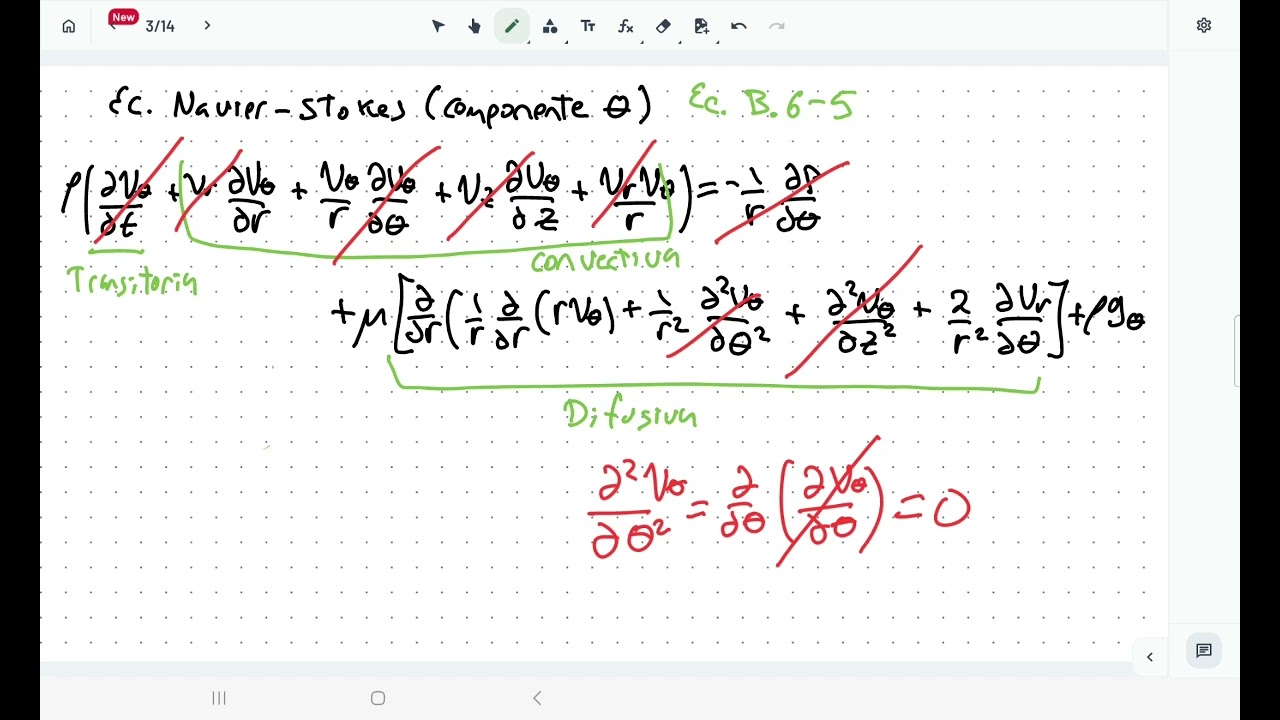 New
3/14
Tт
fx
Ec. Navier-Stokes (componente θ) Ec. B.6-5
ρ(∂Vθ/∂t + Vr ∂Vθ/∂r + Vθ/r ∂Vθ/∂θ + Vz ∂Vθ/∂z + VrVθ/r) = -1/r ∂P/∂θ
Transitoria
convectiva
+ μ[∂/∂r (1/r ∂/∂r (rVθ) + 1/r² ∂²Vθ/∂θ² + ∂²Vθ/∂z² + 2/r² ∂Vr/∂θ] + ρgθ
Difusiva
∂²Vθ/∂θ² = ∂/∂θ (∂Vθ/∂θ) = 0